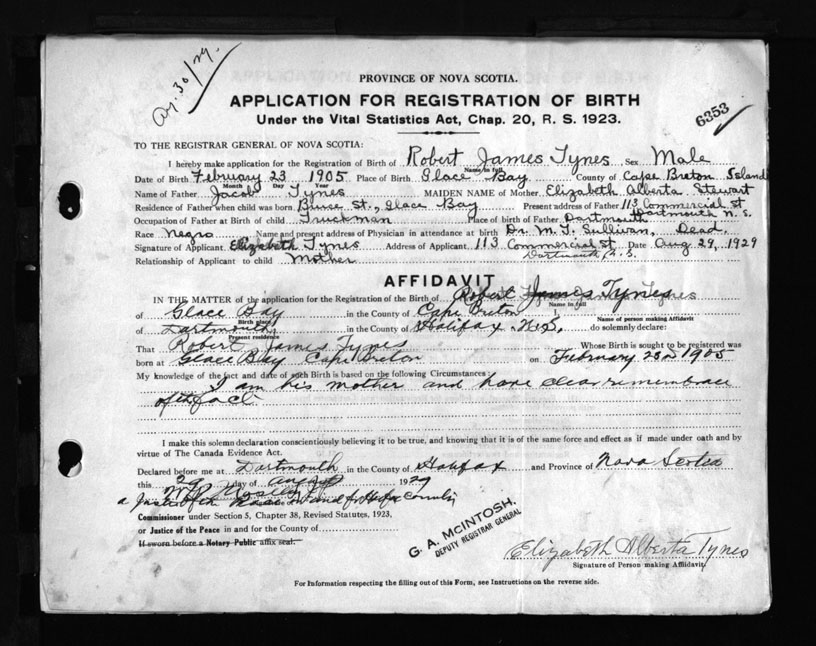 Ag. 30/29.
PROVINCE OF NOVA SCOTIA.
APPLICATION FOR REGISTRATION OF BIRTH
Under the Vital Statistics Act, Chap. 20, R. S. 1923.
6353
TO THE REGISTRAR GENERAL OF NOVA SCOTIA:
I hereby make application for the Registration of Birth of Robert James Tynes Sex Male
Name in full
Date of Birth February 23 1905 Place of Birth Glace Bay County of Cape Breton Island
Month Day Year
Name of Father Jacob Tynes MAIDEN NAME of Mother Elizabeth Alberta Stewart
Residence of Father when child was born Bruce St., Glace Bay Present address of Father 113 Commercial st Dartmouth N. S.
Occupation of Father at Birth of child Truckman Place of birth of Father Dartmouth
Race Negro Name and present address of Physician in attendance at birth Dr. M. T. Sullivan, Dead.
Signature of Applicant Elizabeth Tynes Address of Applicant 113 Commercial st. Date Aug 29, 1929
Dartmouth, N. S.
Relationship of Applicant to child Mother
AFFIDAVIT
IN THE MATTER of the application for the Registration of Birth of Robert James Tynes
Name in full
of Glace Bay in the County of Cape Breton I
Birth place Name of person making Affidavit
of Dartmouth in the County of Halifax N.S. do solemnly declare:
Present residence
That Robert James Tynes Whose Birth is sought to be registered was
born at Glace Bay Cape Breton on February 23 1905
My knowledge of the fact and date of such Birth is based on the following Circumstances:
I am his mother and have clear remembrace
of the fact
I make this solemn declaration conscientiously believing it to be true, and knowing that it is of the same force and effect as if made under oath and by
virtue of The Canada Evidence Act.
Declared before me at Dartmouth in the County of Halifax and Province of Nova Scotia
this 29 day of Aug 1929
a Justice of the Peace in and for Halifax County
Commissioner under Section 5, Chapter 38, Revised Statutes, 1923.
or Justice of the Peace in and for the County of
If sworn before a Notary Public affix seal.
G. A. McINTOSH,
DEPUTY REGISTRAR GENERAL
Elizabeth Alberta Tynes
Signature of Person making Affidavit.
For Information respecting the filling out of this Form, see Instructions on the reverse side.